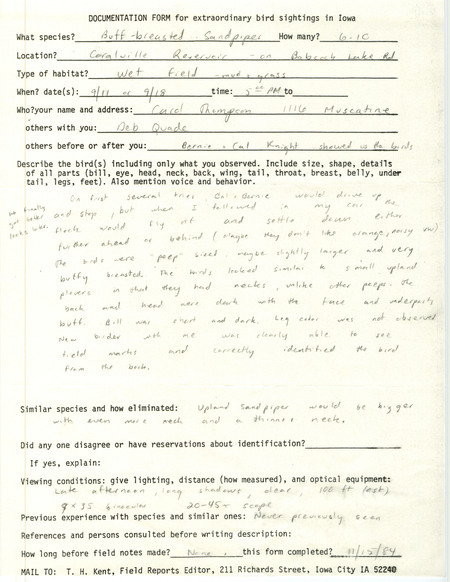 DOCUMENTATION FORM for extraordinary bird sightings in Iowa
What species? Buff-breasted Sandpiper How many? 6-10
Location? Coralville Reservoir - on Babcock Lake Rd
Type of habitat? Wet field - mud & grass
When? date(s): 9/11 or 9/18 time: 5 00 PM to
Who? your name and address: Carol Thompson 1116 Muscatine
others with you: Deb Quade
others before or after you: Bernie & Cal Knight showed us the birds
Describe the bird(s) including only what you observed. Include size, shape, details
of all parts (bill, eye, head, neck, back, wing, tail, throat, breast, belly, under
tail, legs, feet). Also mention voice and behavior.
On first several tries Cal & Bernie would drive up
and stop, but when I followed in my car the
flock would fly off and settle down either
further ahead or behind (maybe they don't like orange, noisy VW)
We finally got better looks later.
The birds were "peep" sized, maybe slightly larger and very
buffy breasted. The birds looked similar to small upland
plovers in that they had necks, unlike other peeps. The
back and head were dark with the face and underparts
buff. Bill was short and dark. Leg color was not observed
New birder with me was clearly able to see
field marks and correctly identified the bird
from the book.
Similar species and how eliminated: Upland Sandpiper would be bigger
with even more neck and a thinner neck.
Did any one disagree or have reservations about identification?
If yes, explain:
Viewing conditions: give lighting, distance (how measured), and optical equipment:
Late afternoon, long shadows, clear, 100 ft (est)
9 x 35 binocular 20-45x scope
Previous experience with species and similar ones: Never previously seen
References and persons consulted before writing description:
How long before field notes made? None. this form completed? 11/15/84
MAIL TO: T. H. Kent, Field Reports Editor, 211 Richards Street, Iowa City IA 52240